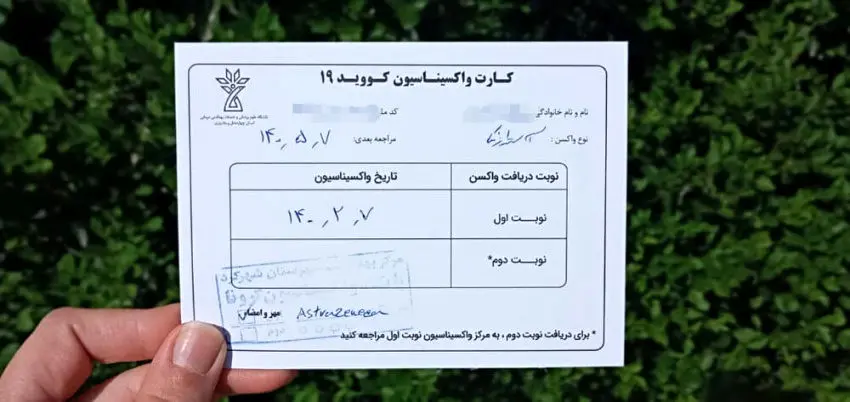 کارت واکسیناسیون کووید ۱۹
دانشگاه علوم پزشکی و خدمات بهداشتی درمانی
استان چهارمحال و بختیاری
نام و نام خانوادگی
کد ملی
نوع واکسن : آسترازنکا
مراجعه بعدی: ۱۴۰۰٫۵٫۷
نوبت دریافت واکسن تاریخ واکسیناسیون
نوبت اول ۱۴۰۰٫۲٫۷
نوبت دوم*
مرکز استان شهرکرد
کرونا
مهر و امضای AstraZeneca
* برای دریافت نوبت دوم ، به مرکز واکسیناسیون نوبت اول مراجعه کنید